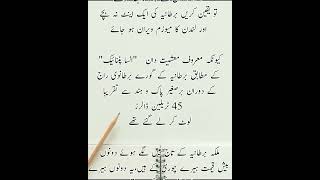 تو یقین کریں برطانیہ کی ایک اینٹ نہ بچے
اور لندن کا میوزم ویران ہو جائے
کیونکہ معروف معشیت دان "اتسا پٹنائیک"
کے مطابق برطانیہ کے گورے برطانوی راج
کے دوران برصغیر پاک و ہند سے تقریبا
45 ٹریلین ڈالرز
لوٹ کر لے گئے تھے
ملکہ برطانیہ کے تاج میں لگے ہوئے دونوں
بیش قیمت ہیرے چوری کے ہیں،یہ دونوں ہیرے